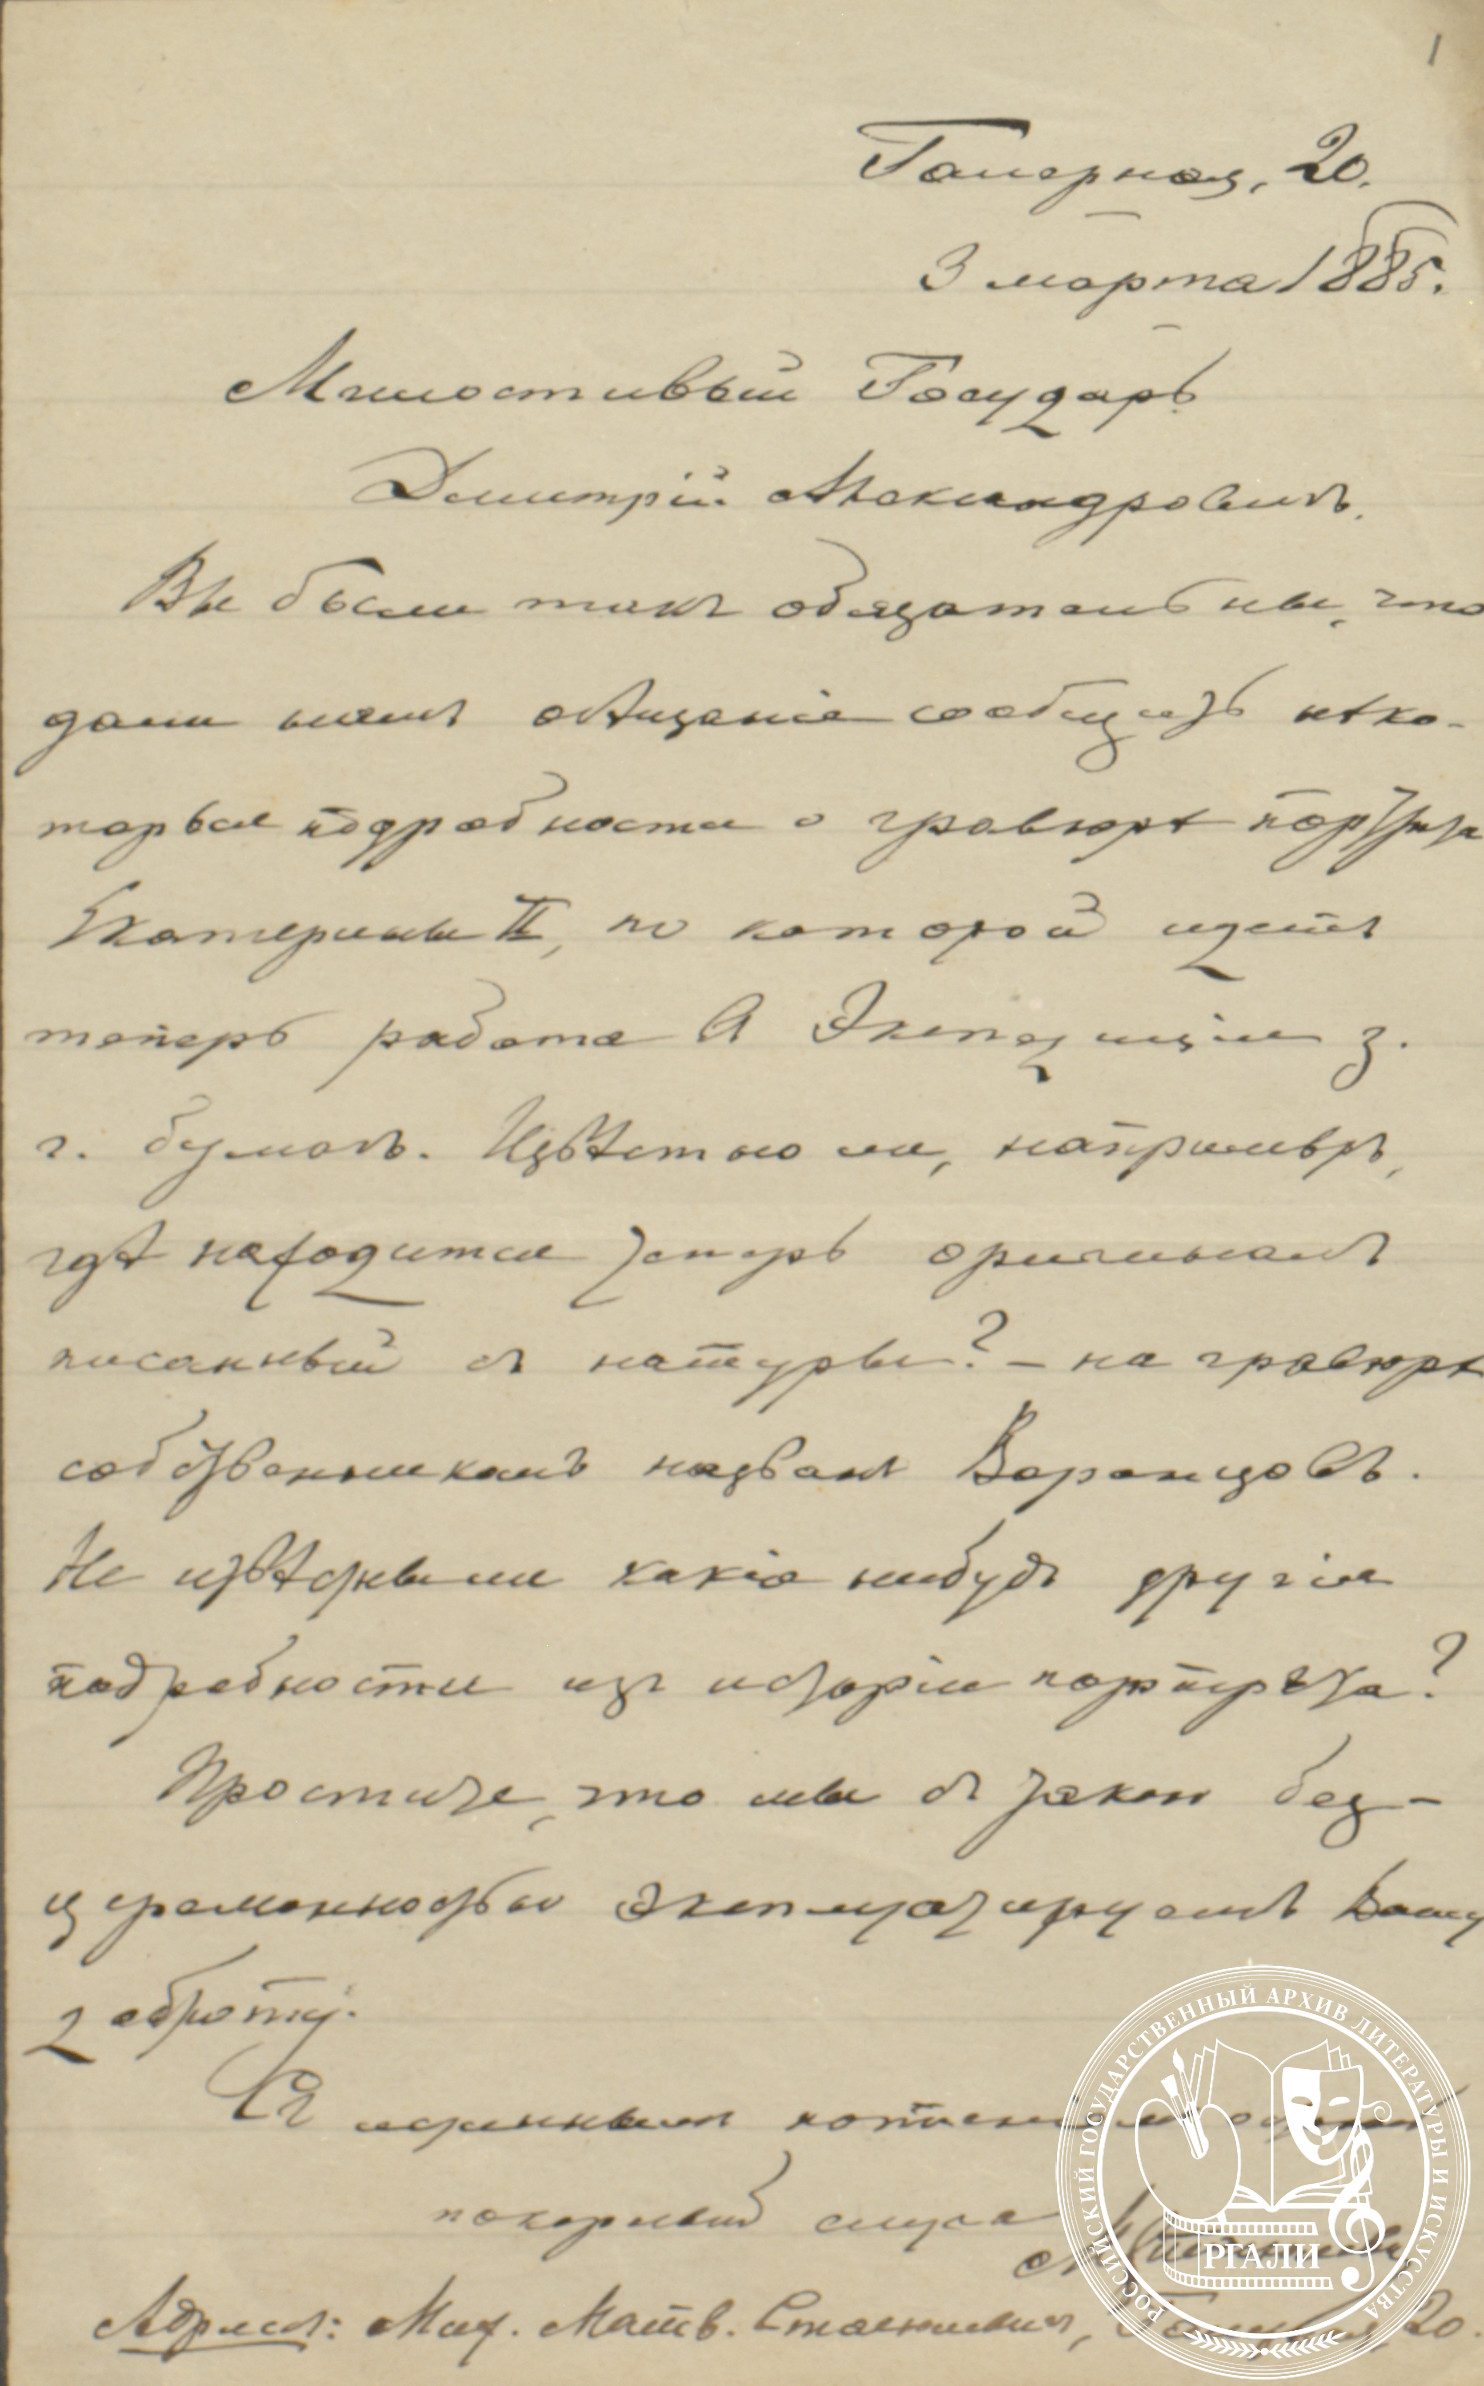 1
Галерная, 20.
3 марта 1885.
Милостивый Государь
Дмитрій Александровичъ.
Вы были такъ обязательны, что
дали намъ обѣщаніе сообщить нѣко-
торыя подробности о гравюрѣ портрета
Екатерины II, по которой идетъ
теперь работа в Экспедиціи з.
г. бумагъ. Извѣстно ли, напримѣръ,
гдѣ находится теперь оригиналъ
писанный съ натуры? – на гравюрѣ
собственникомъ названъ Воронцовъ.
Не извѣстны ли какія нибудь другія
подробности изъ исторіи портрета?
Простите, что мы съ такой без-
церемонностью эксплуатируемъ Вашу
доброту.
Съ истиннымъ почтеніемъ
покорный слуга
Адресъ: Мих. Матв. Стасюлевичъ, Галерная, 20.
РОССИЙСКИЙ ГОСУДАРСТВЕННЫЙ АРХИВ ЛИТЕРАТУРЫ И ИСКУССТВА
РГАЛИ